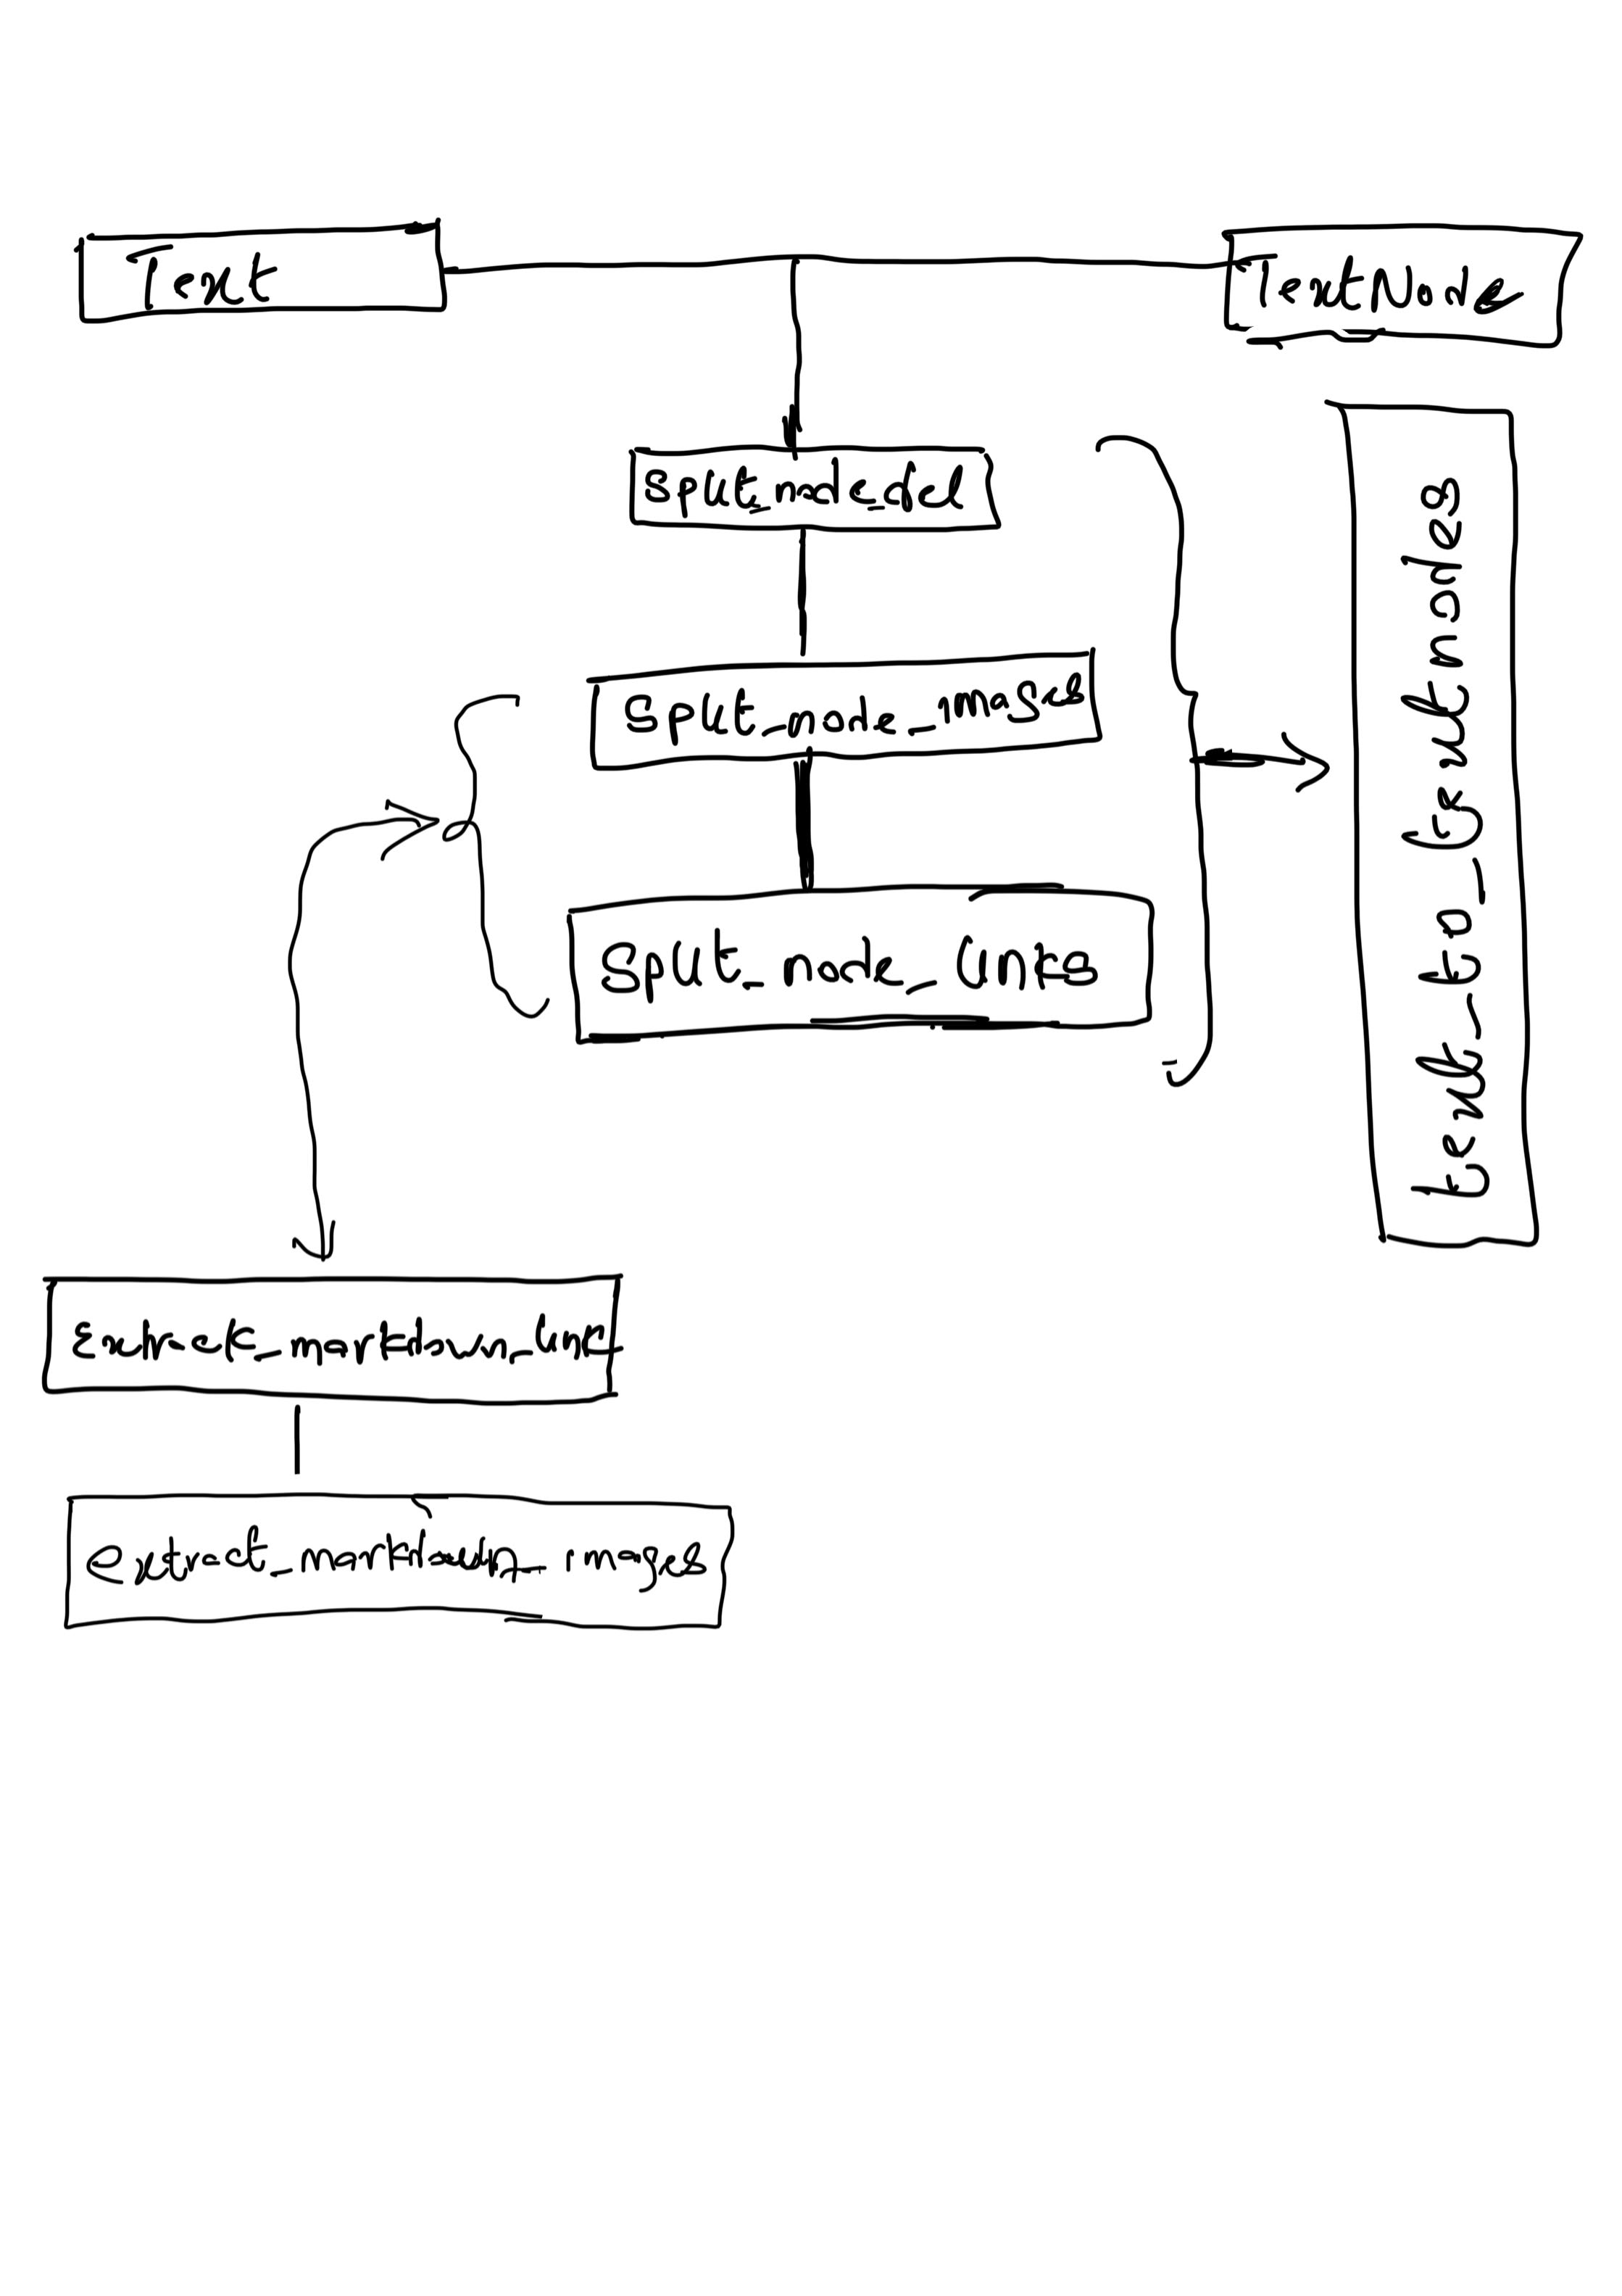 Text
TextNode
Split_node_del
Split_node_images
Split_node_links
text_to_textnodes
Extract_markdown_link
extract_markdown_image